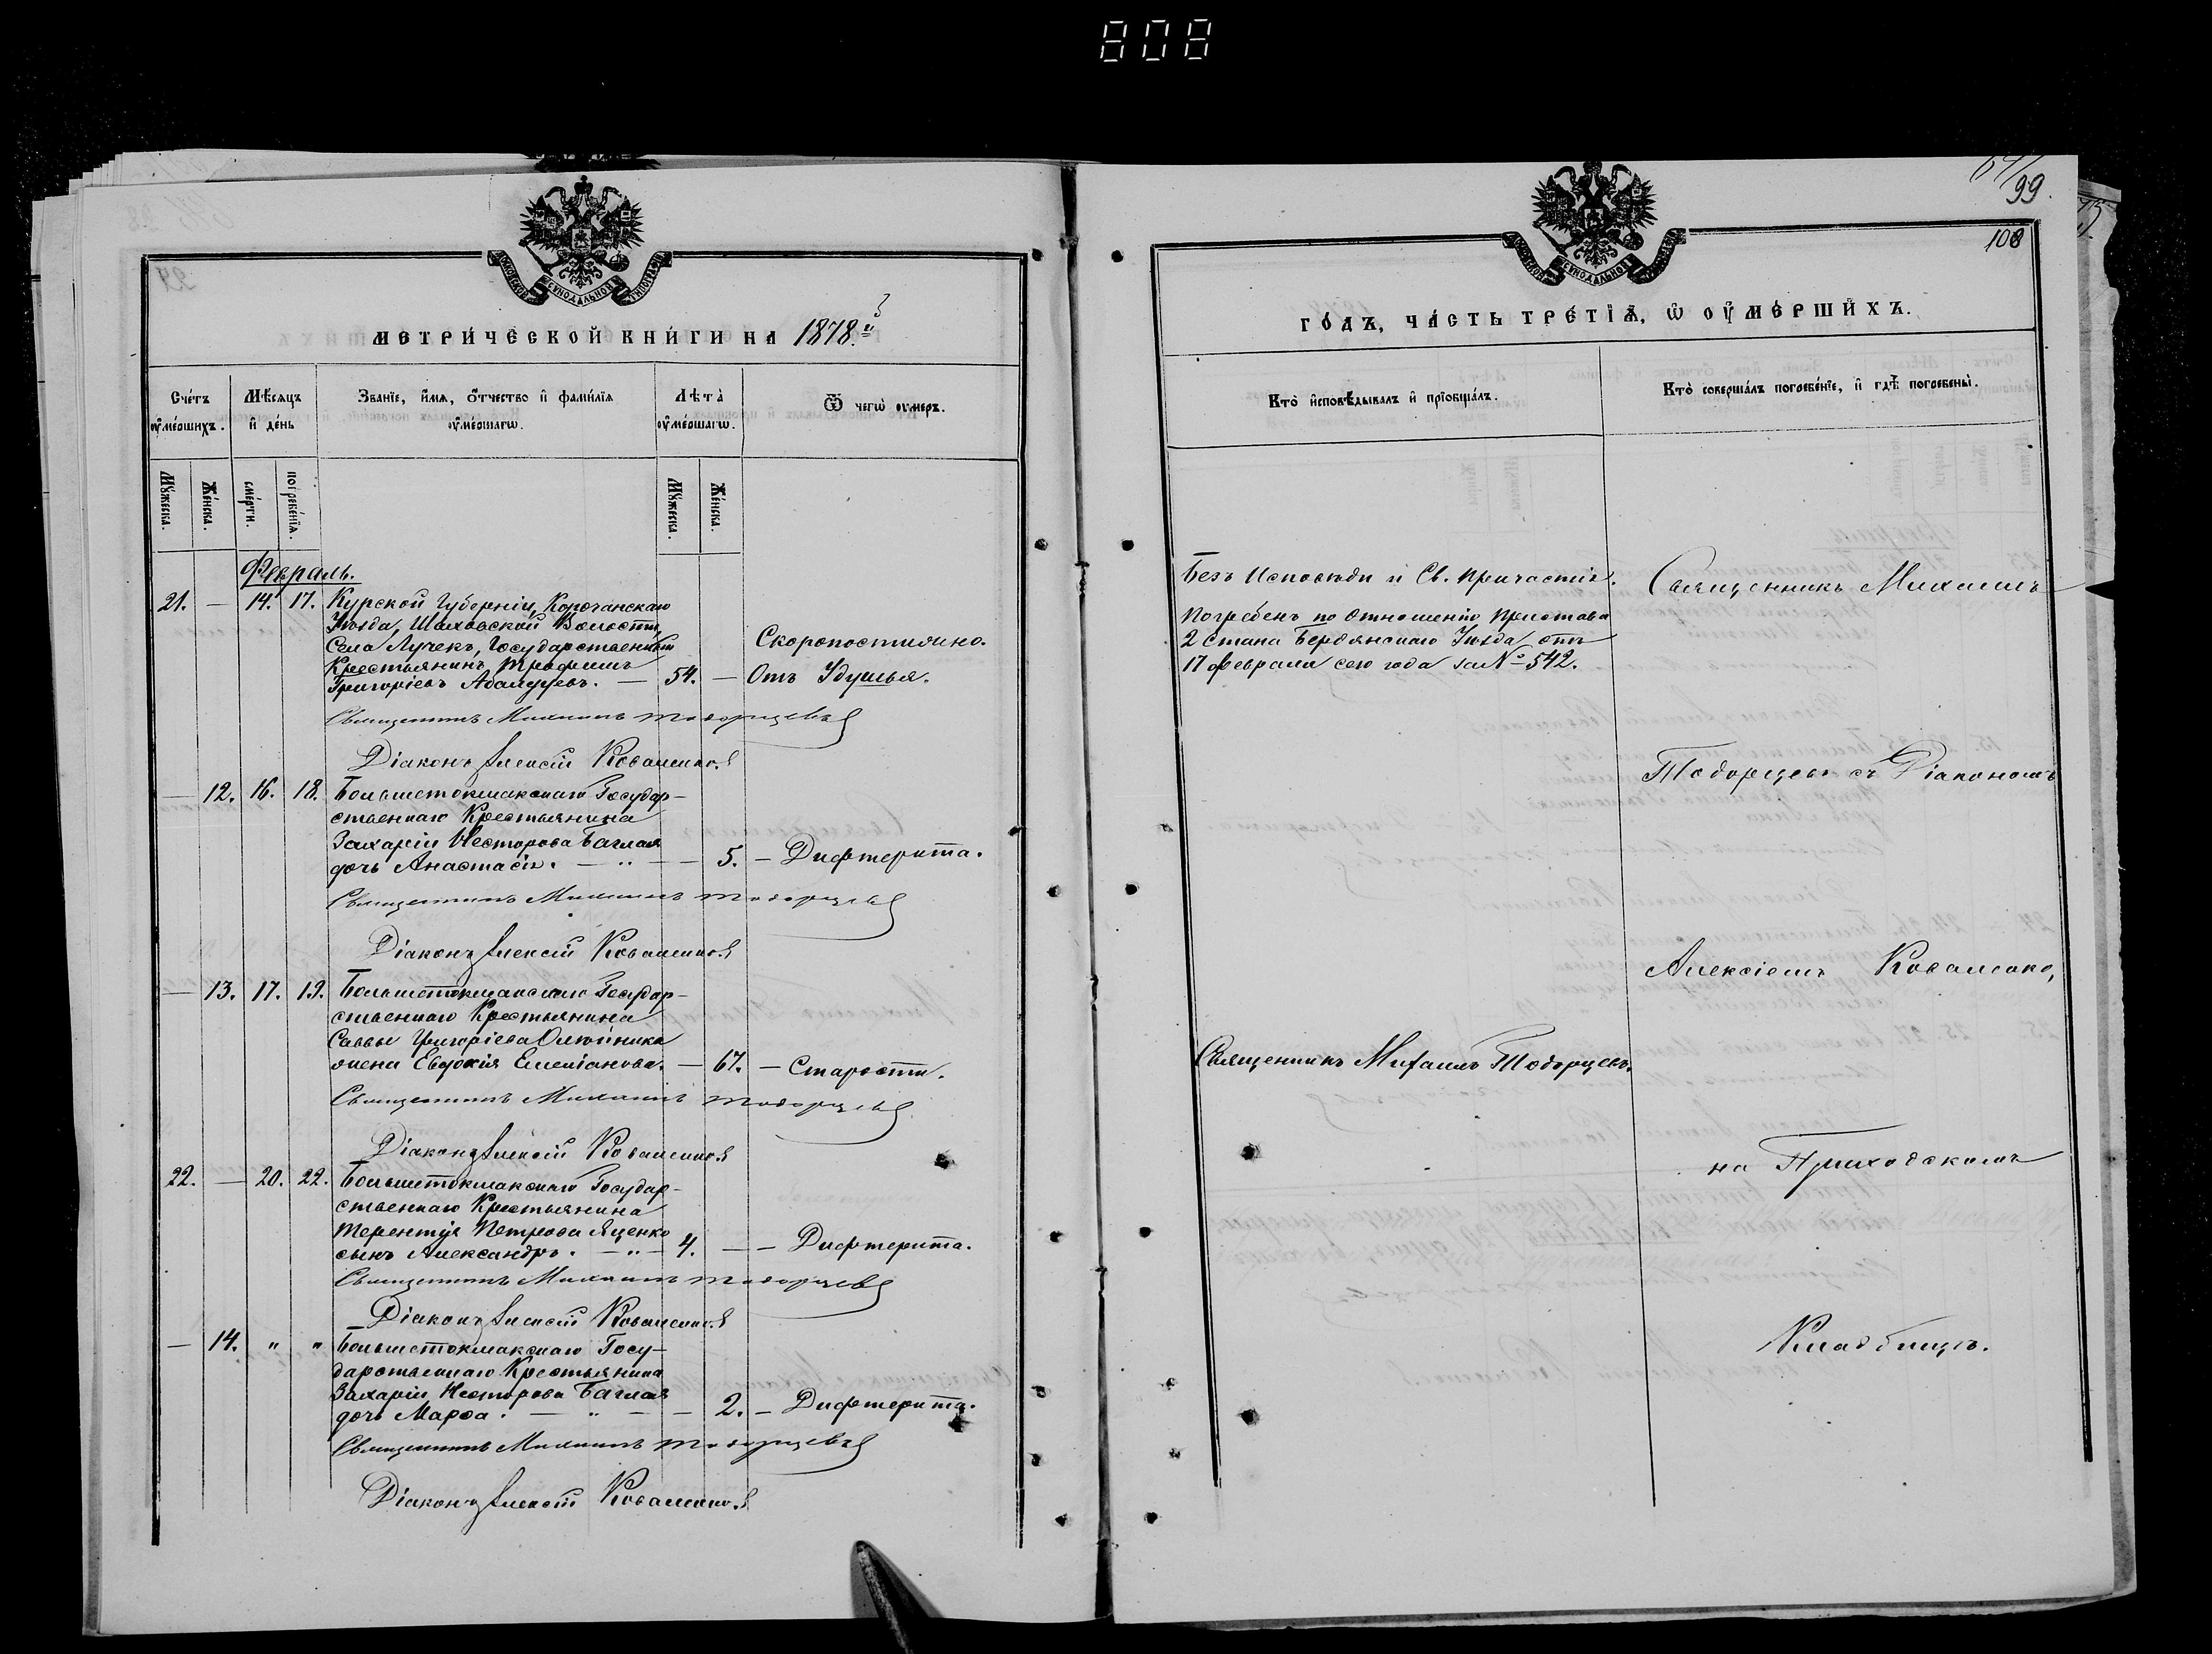 808
МЕТРИ́ЧЕСКОЙ КНИ́ГИ НА 1878.й
Сче́тъ
ᲂу҆ме́ршихъ.
Мѣ́сяцъ
и҆ де́нь
Зва́нїе, и҆́мя, ѻ҆́тчество и҆ фами́лїя
ᲂу҆ме́ршагѡ.
Лѣ́та
ᲂу҆ме́ршагѡ.
Ѿ чегѡ̀ ᲂу҆́меръ.
Мꙋ́жеска.
Же́нска.
сме́рти.
погребе́нїѧ.
Мꙋ́жеска.
Же́нска.
Февраль.
21. — 14. 17. Курской Губерніи, Корочанскаго
Уѣзда, Шаховской Волости,
Села Лучекъ, Государственный Скоропостижно.
Крестьянинъ, Трофимъ
Григоріевъ Абалдуевъ. — 54. — Отъ Удушья.
Священникъ Михаилъ Тодорцевъ
Діаконъ Алексій Коваленко.
— 12. 16. 18. Большетокмакскаго Государ-
ственнаго Крестьянина
Захаріи Несторова Баглая
дочь Анастасія. — „ — — 5. — Дифтерита.
Священникъ Михаилъ Тодорцевъ
Діаконъ Алексій Коваленко.
— 13. 17. 19. Большетокмакскаго Государ-
ственнаго Крестьянина
Саввы Григоріева Олейника
жена Евдокія Емеліанова. — 67. — Старости.
Священникъ Михаилъ Тодорцевъ
Діаконъ Алексій Коваленко.
22. — 20. 22. Большетокмакскаго Государ-
ственнаго Крестьянина
Терентія Петрова Яценко
сынъ Александръ. — „ — 4. — — Дифтерита.
Священникъ Михаилъ Тодорцевъ
Діаконъ Алексій Коваленко.
— 14. „ „ Большетокмакскаго Госу-
дарственнаго Крестьянина
Захаріи Несторова Баглая
дочь Марѳа. — „ — — 2. — Дифтерита.
Священникъ Михаилъ Тодорцевъ
Діаконъ Алексій Коваленко.
99.
108
ГО́ДЪ, ЧА́СТЬ ТРЕ́ТЇѦ, Ѡ҆ ОУ҆МЕ́РШИХЪ.
Кто̀ и҆сповѣ́дывалъ и҆ прїѡбща́лъ.
Кто̀ соверша́лъ погребе́нїе, и҆ гдѣ̀ погребены̀.
Безъ Исповѣди и Св. Причастія.
Погребенъ по Отношенію Пристава
2 Стана Бердянскаго Уѣзда отъ
17 Февраля сего года за № 542.
Священникъ Михаилъ Тодорцевъ.
Священникъ Михаилъ
Тодорцевъ съ Діакономъ
Алексіемъ Коваленко,
на Приходскомъ
Кладбищѣ.